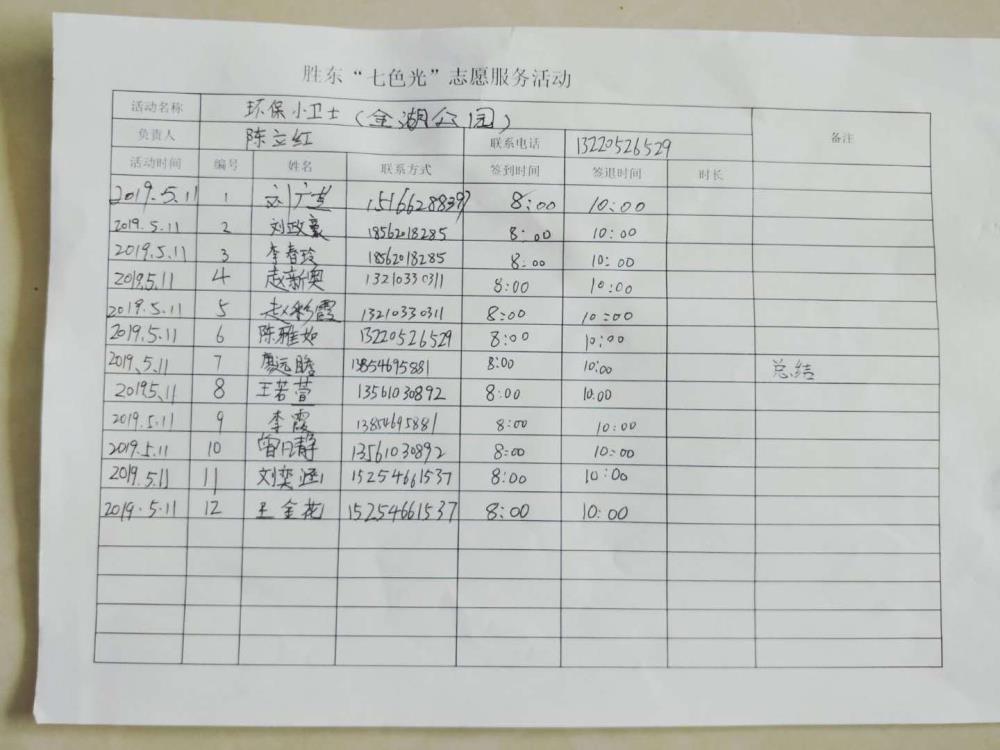 胜东“七色光”志愿服务活动
活动名称 环保小卫士(金湖公园) 备注
负责人 陈立红 联系电话 13220526529
活动时间 编号 姓名 联系方式 签到时间 签退时间 时长
2019.5.11 1 刘广 15166288397 8:00 10:00
2019.5.11 2 刘政豪 18562018285 8:00 10:00
2019.5.11 3 李春玲 18562018285 8:00 10:00
2019.5.11 4 赵新奥 13210330311 8:00 10:00
2019.5.11 5 赵彩霞 13210330311 8:00 10:00
2019.5.11 6 陈雅如 13220526529 8:00 10:00
2019.5.11 7 远瞻 13854695881 8:00 10:00 总结
2019.5.11 8 王若萱 13561030892 8:00 10:00
2019.5.11 9 李霞 13854695881 8:00 10:00
2019.5.11 10 静 13561030892 8:00 10:00
2019.5.11 11 刘奕涵 15254661537 8:00 10:00
2019.5.11 12 王金花 15254661537 8:00 10:00